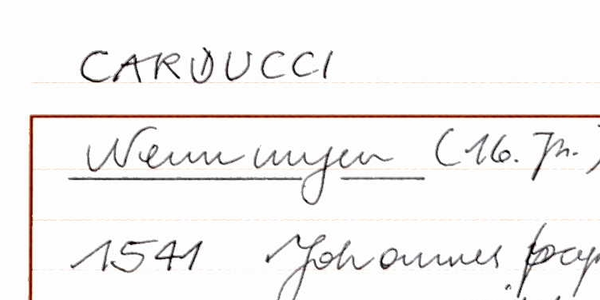 CARDUCCI
Nennungen (16. Jh.)
1541 Johannes